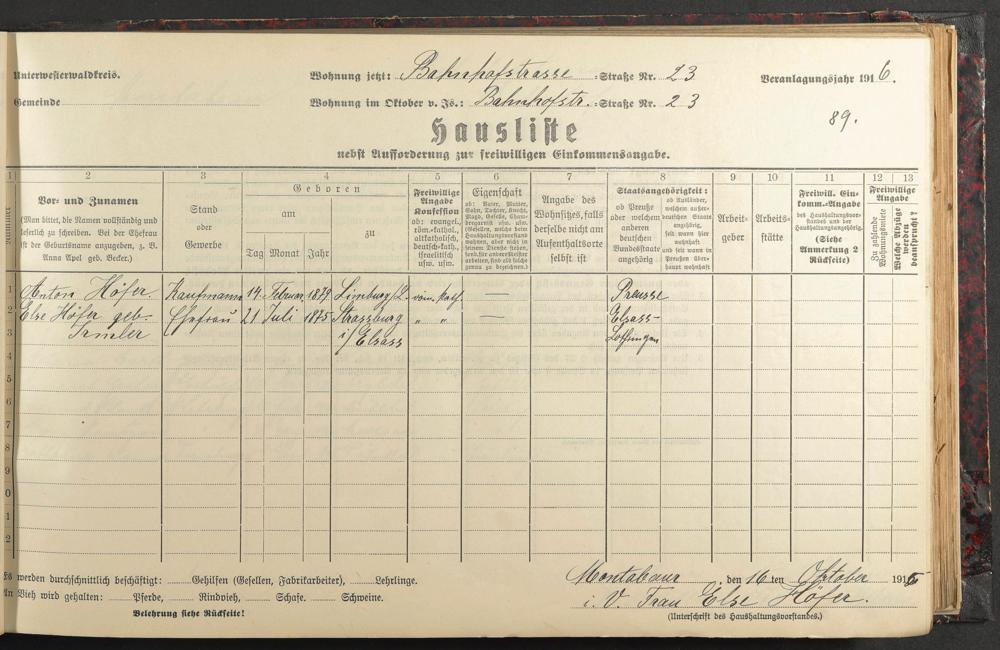 Unterwesterwaldkreis.
Wohnung jetzt: Bahnhofstrasse =Straße Nr. 23
Veranlagungsjahr 1916.
Gemeinde
Wohnung im Oktober v. Js.: Bahnhofstr. =Straße Nr. 23
89.
Hausliste
nebst Aufforderung zur freiwilligen Einkommensangabe.
1 2 3 4 5 6 7 8 9 10 11 12 13
Nummer
Vor- und Zunamen
(Man bittet, die Namen vollständig und
leserlich zu schreiben. Bei der Ehefrau
ist der Geburtsname anzugeben, z. B.
Anna Apel geb. Becker.)
Stand
oder
Gewerbe
Geboren
am
zu
Tag Monat Jahr
Freiwillige
Angabe
Konfession
ob: evangel.,
röm.-kathol.,
altkatholisch,
deutsch-kath.,
israelitisch
usw. usw.
Eigenschaft
ob: Vater, Mutter,
Sohn, Tochter, Knecht,
Magd, Geselle, Cham-
bregarnist usw. usw.
(Gesellen, welche beim
Haushaltungsvorstand
wohnen, aber nicht in
seinem Dienste stehen,
sond. für andere Meister
arbeiten, sind als solche
genau zu bezeichnen.)
Angabe des
Wohnsitzes, falls
derselbe nicht am
Aufenthaltsorte
selbst ist
Staatsangehörigkeit:
ob Preuße
oder welchem
anderen
deutschen
Bundesstaate
angehörig
ob Ausländer,
welchem außer-
deutschen Staate
angehörig,
seit wann hier
wohnhaft
und seit wann in
Preußen über-
haupt wohnhaft
Arbeit-
geber
Arbeits-
stätte
Freiwill. Ein-
komm.-Angabe
des Haushaltungsvor-
standes und der
Haushaltungsangehörig.
(Siehe
Anmerkung 2
Rückseite)
Freiwillige
Angabe
Zu zahlende
Wohnungsmiete
Welche Abzüge
werden
beansprucht?
1 Anton Höfer. Kaufmann 14. Februar 1879 Limburg/L. röm. kath. — Preusse
2 Else Höfer geb. Ehefrau 21 Juli 1875 Strassburg " " — Elsass-
3 i/ Elsass Lothringen
4
5
6
7
8
9
0
1
2
Es werden durchschnittlich beschäftigt: Gehilfen (Gesellen, Fabrikarbeiter), Lehrlinge.
An Vieh wird gehalten: Pferde, Rindvieh, Schafe. Schweine.
Belehrung siehe Rückseite!
Montabaur, den 16 ten Oktober 1915
i. V. Frau Else Höfer.
(Unterschrift des Haushaltungsvorstandes.)